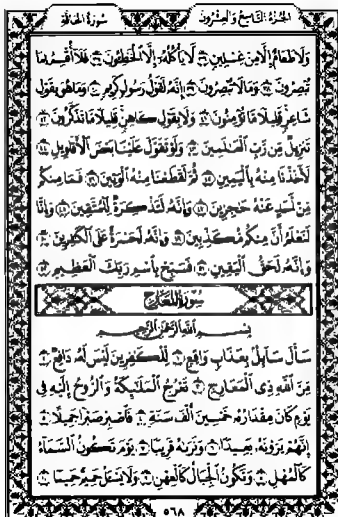 سُورَةُ الحَاقَّةِ الجُزْءُ التَّاسِعُ وَالعِشْرُونَ
وَلَا طَعَامٌ إِلَّا مِنْ غِسْلِينٍ ٣٦ لَّا يَأْكُلُهُۥٓ إِلَّا ٱلْخَٰطِـُٔونَ ٣٧ فَلَآ أُقْسِمُ بِمَا
تُبْصِرُونَ ٣٨ وَمَا لَا تُبْصِرُونَ ٣٩ إِنَّهُۥ لَقَوْلُ رَسُولٍ كَرِيمٍ ٤٠ وَمَا هُوَ بِقَوْلِ
شَاعِرٍ قَلِيلًا مَّا تُؤْمِنُونَ ٤١ وَلَا بِقَوْلِ كَاهِنٍ قَلِيلًا مَّا تَذَكَّرُونَ ٤٢
تَنزِيلٌ مِّن رَّبِّ ٱلْعَٰلَمِينَ ٤٣ وَلَوْ تَقَوَّلَ عَلَيْنَا بَعْضَ ٱلْأَقَاوِيلِ ٤٤
لَأَخَذْنَا مِنْهُ بِٱلْيَمِينِ ٤٥ ثُمَّ لَقَطَعْنَا مِنْهُ ٱلْوَتِينَ ٤٦ فَمَا مِنكُم
مِّنْ أَحَدٍ عَنْهُ حَٰجِزِينَ ٤٧ وَإِنَّهُۥ لَتَذْكِرَةٌ لِّلْمُتَّقِينَ ٤٨ وَإِنَّا
لَنَعْلَمُ أَنَّ مِنكُم مُّكَذِّبِينَ ٤٩ وَإِنَّهُۥ لَحَسْرَةٌ عَلَى ٱلْكَٰفِرِينَ ٥٠
وَإِنَّهُۥ لَحَقُّ ٱلْيَقِينِ ٥١ فَسَبِّحْ بِٱسْمِ رَبِّكَ ٱلْعَظِيمِ ٥٢
سُورَةُ المَعَارِجِ
بِسْمِ ٱللَّهِ ٱلرَّحْمَٰنِ ٱلرَّحِيمِ
سَأَلَ سَآئِلٌۢ بِعَذَابٍ وَاقِعٍ ١ لِّلْكَٰفِرِينَ لَيْسَ لَهُۥ دَافِعٌ ٢
مِّنَ ٱللَّهِ ذِى ٱلْمَعَارِجِ ٣ تَعْرُجُ ٱلْمَلَٰٓئِكَةُ وَٱلرُّوحُ إِلَيْهِ فِى
يَوْمٍ كَانَ مِقْدَارُهُۥ خَمْسِينَ أَلْفَ سَنَةٍ ٤ فَٱصْبِرْ صَبْرًا جَمِيلًا ٥
إِنَّهُمْ يَرَوْنَهُۥ بَعِيدًا ٦ وَنَرَىٰهُ قَرِيبًا ٧ يَوْمَ تَكُونُ ٱلسَّمَآءُ
كَٱلْمُهْلِ ٨ وَتَكُونُ ٱلْجِبَالُ كَٱلْعِهْنِ ٩ وَلَا يَسْـَٔلُ حَمِيمٌ حَمِيمًا ١٠
٥٦٨